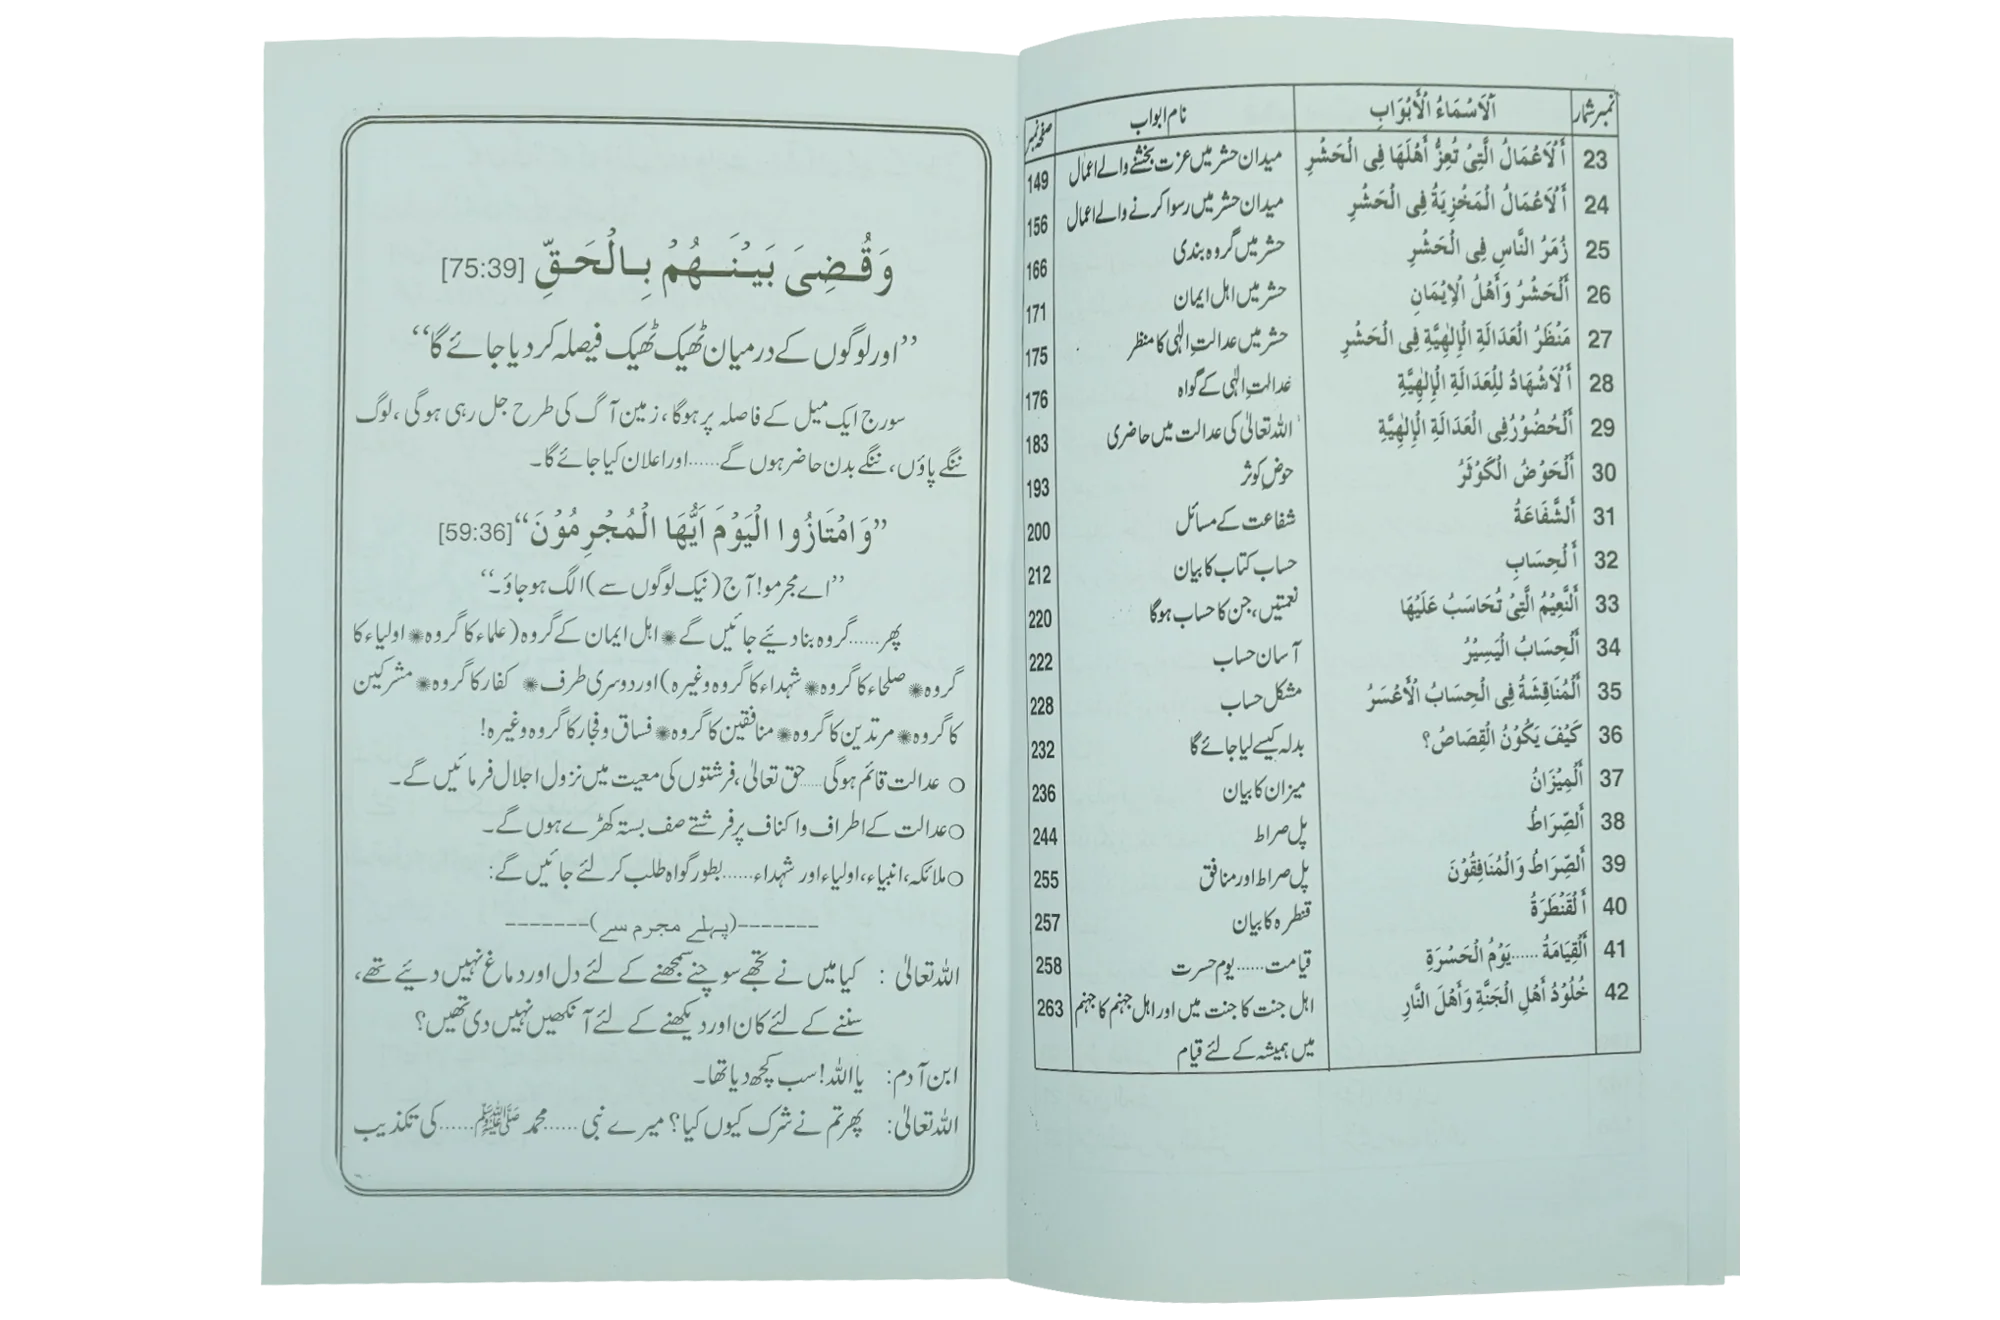 نمبر شمار اَلْاَسْمَاءُ الْأَبْوَابِ نام ابواب صفحہ نمبر
23 أَلْاَعْمَالُ الَّتِیْ تُعِزُّ أَهْلَهَا فِی الْحَشْرِ میدان حشر میں عزت بخشنے والے اعمال 149
24 أَلْاَعْمَالُ الْمَخْزِيَةُ فِی الْحَشْرِ میدان حشر میں رسوا کرنے والے اعمال 156
25 زُمَرُ النَّاسِ فِی الْحَشْرِ حشر میں گروہ بندی 166
26 أَلْحَشْرُ وَأَهْلُ الْاِیْمَانِ حشر میں اہل ایمان 171
27 مَنْظَرُ الْعَدَالَةِ الْإِلٰهِيَّةِ فِی الْحَشْرِ حشر میں عدالتِ الٰہی کا منظر 175
28 أَلْاَشْهَادُ لِلْعَدَالَةِ الْإِلٰهِيَّةِ عدالتِ الٰہی کے گواہ 176
29 أَلْحُضُوْرُ فِی الْعَدَالَةِ الْإِلٰهِيَّةِ اللہ تعالیٰ کی عدالت میں حاضری 183
30 أَلْحَوْضُ الْكَوْثَرُ حوضِ کوثر 193
31 أَلشَّفَاعَةُ شفاعت کے مسائل 200
32 أَلْحِسَابِ حساب کتاب کا بیان 212
33 أَلنَّعِيْمُ الَّتِیْ تُحَاسَبُ عَلَيْهَا نعمتیں، جن کا حساب ہوگا 220
34 أَلْحِسَابُ الْيَسِيْرُ آسان حساب 222
35 أَلْمُنَاقِشَةُ فِی الْحِسَابُ الْأَعْسَرُ مشکل حساب 228
36 كَيْفَ يَكُوْنُ الْقِصَاصُ؟ بدلہ کیسے لیا جائے گا 232
37 أَلْمِيْزَانُ میزان کا بیان 236
38 أَلصِّرَاطُ پل صراط 244
39 أَلصِّرَاطُ وَالْمُنَافِقُوْنَ پل صراط اور منافق 255
40 أَلْقَنْطَرَةُ قنطرہ کا بیان 257
41 أَلْقِيَامَةُ ......يَوْمُ الْحَسْرَةِ قیامت......یوم حسرت 258
42 خُلُوْدُ أَهْلِ الْجَنَّةِ وَأَهْلَ النَّارِ اہل جنت کا جنت میں اور اہل جہنم کا جہنم 263
میں ہمیشہ کے لئے قیام
وَقُضِیَ بَيْنَهُمْ بِالْحَقِّ [75:39]
’’اور لوگوں کے درمیان ٹھیک ٹھیک فیصلہ کر دیا جائے گا‘‘
سورج ایک میل کے فاصلہ پر ہوگا، زمین آگ کی طرح جل رہی ہوگی، لوگ
ننگے پاؤں، ننگے بدن حاضر ہوں گے......اور اعلان کیا جائے گا۔
’’وَامْتَازُوا الْيَوْمَ اَيُّهَا الْمُجْرِمُوْنَ‘‘[59:36]
’’اے مجرمو! آج (نیک لوگوں سے) الگ ہو جاؤ۔‘‘
پھر......گروہ بنا دیئے جائیں گے✺ اہل ایمان کے گروہ (علماء کا گروہ✺ اولیاء کا
گروہ✺ صلحاء کا گروہ✺ شہداء کا گروہ وغیرہ) اور دوسری طرف✺ کفار کا گروہ✺ مشرکین
کا گروہ✺ مرتدین کا گروہ✺ منافقین کا گروہ✺ فساق و فجار کا گروہ وغیرہ!
○ عدالت قائم ہوگی......حق تعالیٰ، فرشتوں کی معیت میں نزول اجلال فرمائیں گے۔
○ عدالت کے اطراف و اکناف پر فرشتے صف بستہ کھڑے ہوں گے۔
○ ملائکہ، انبیاء، اولیاء اور شہداء......بطور گواہ طلب کر لئے جائیں گے:
-------(پہلے مجرم سے)-------
اللہ تعالیٰ : کیا میں نے تجھے سوچنے سمجھنے کے لئے دل اور دماغ نہیں دیئے تھے،
سننے کے لئے کان اور دیکھنے کے لئے آنکھیں نہیں دی تھیں؟
ابن آدم: یا اللہ! سب کچھ دیا تھا۔
اللہ تعالیٰ: پھر تم نے شرک کیوں کیا؟ میرے نبی ......محمد ﷺ......کی تکذیب